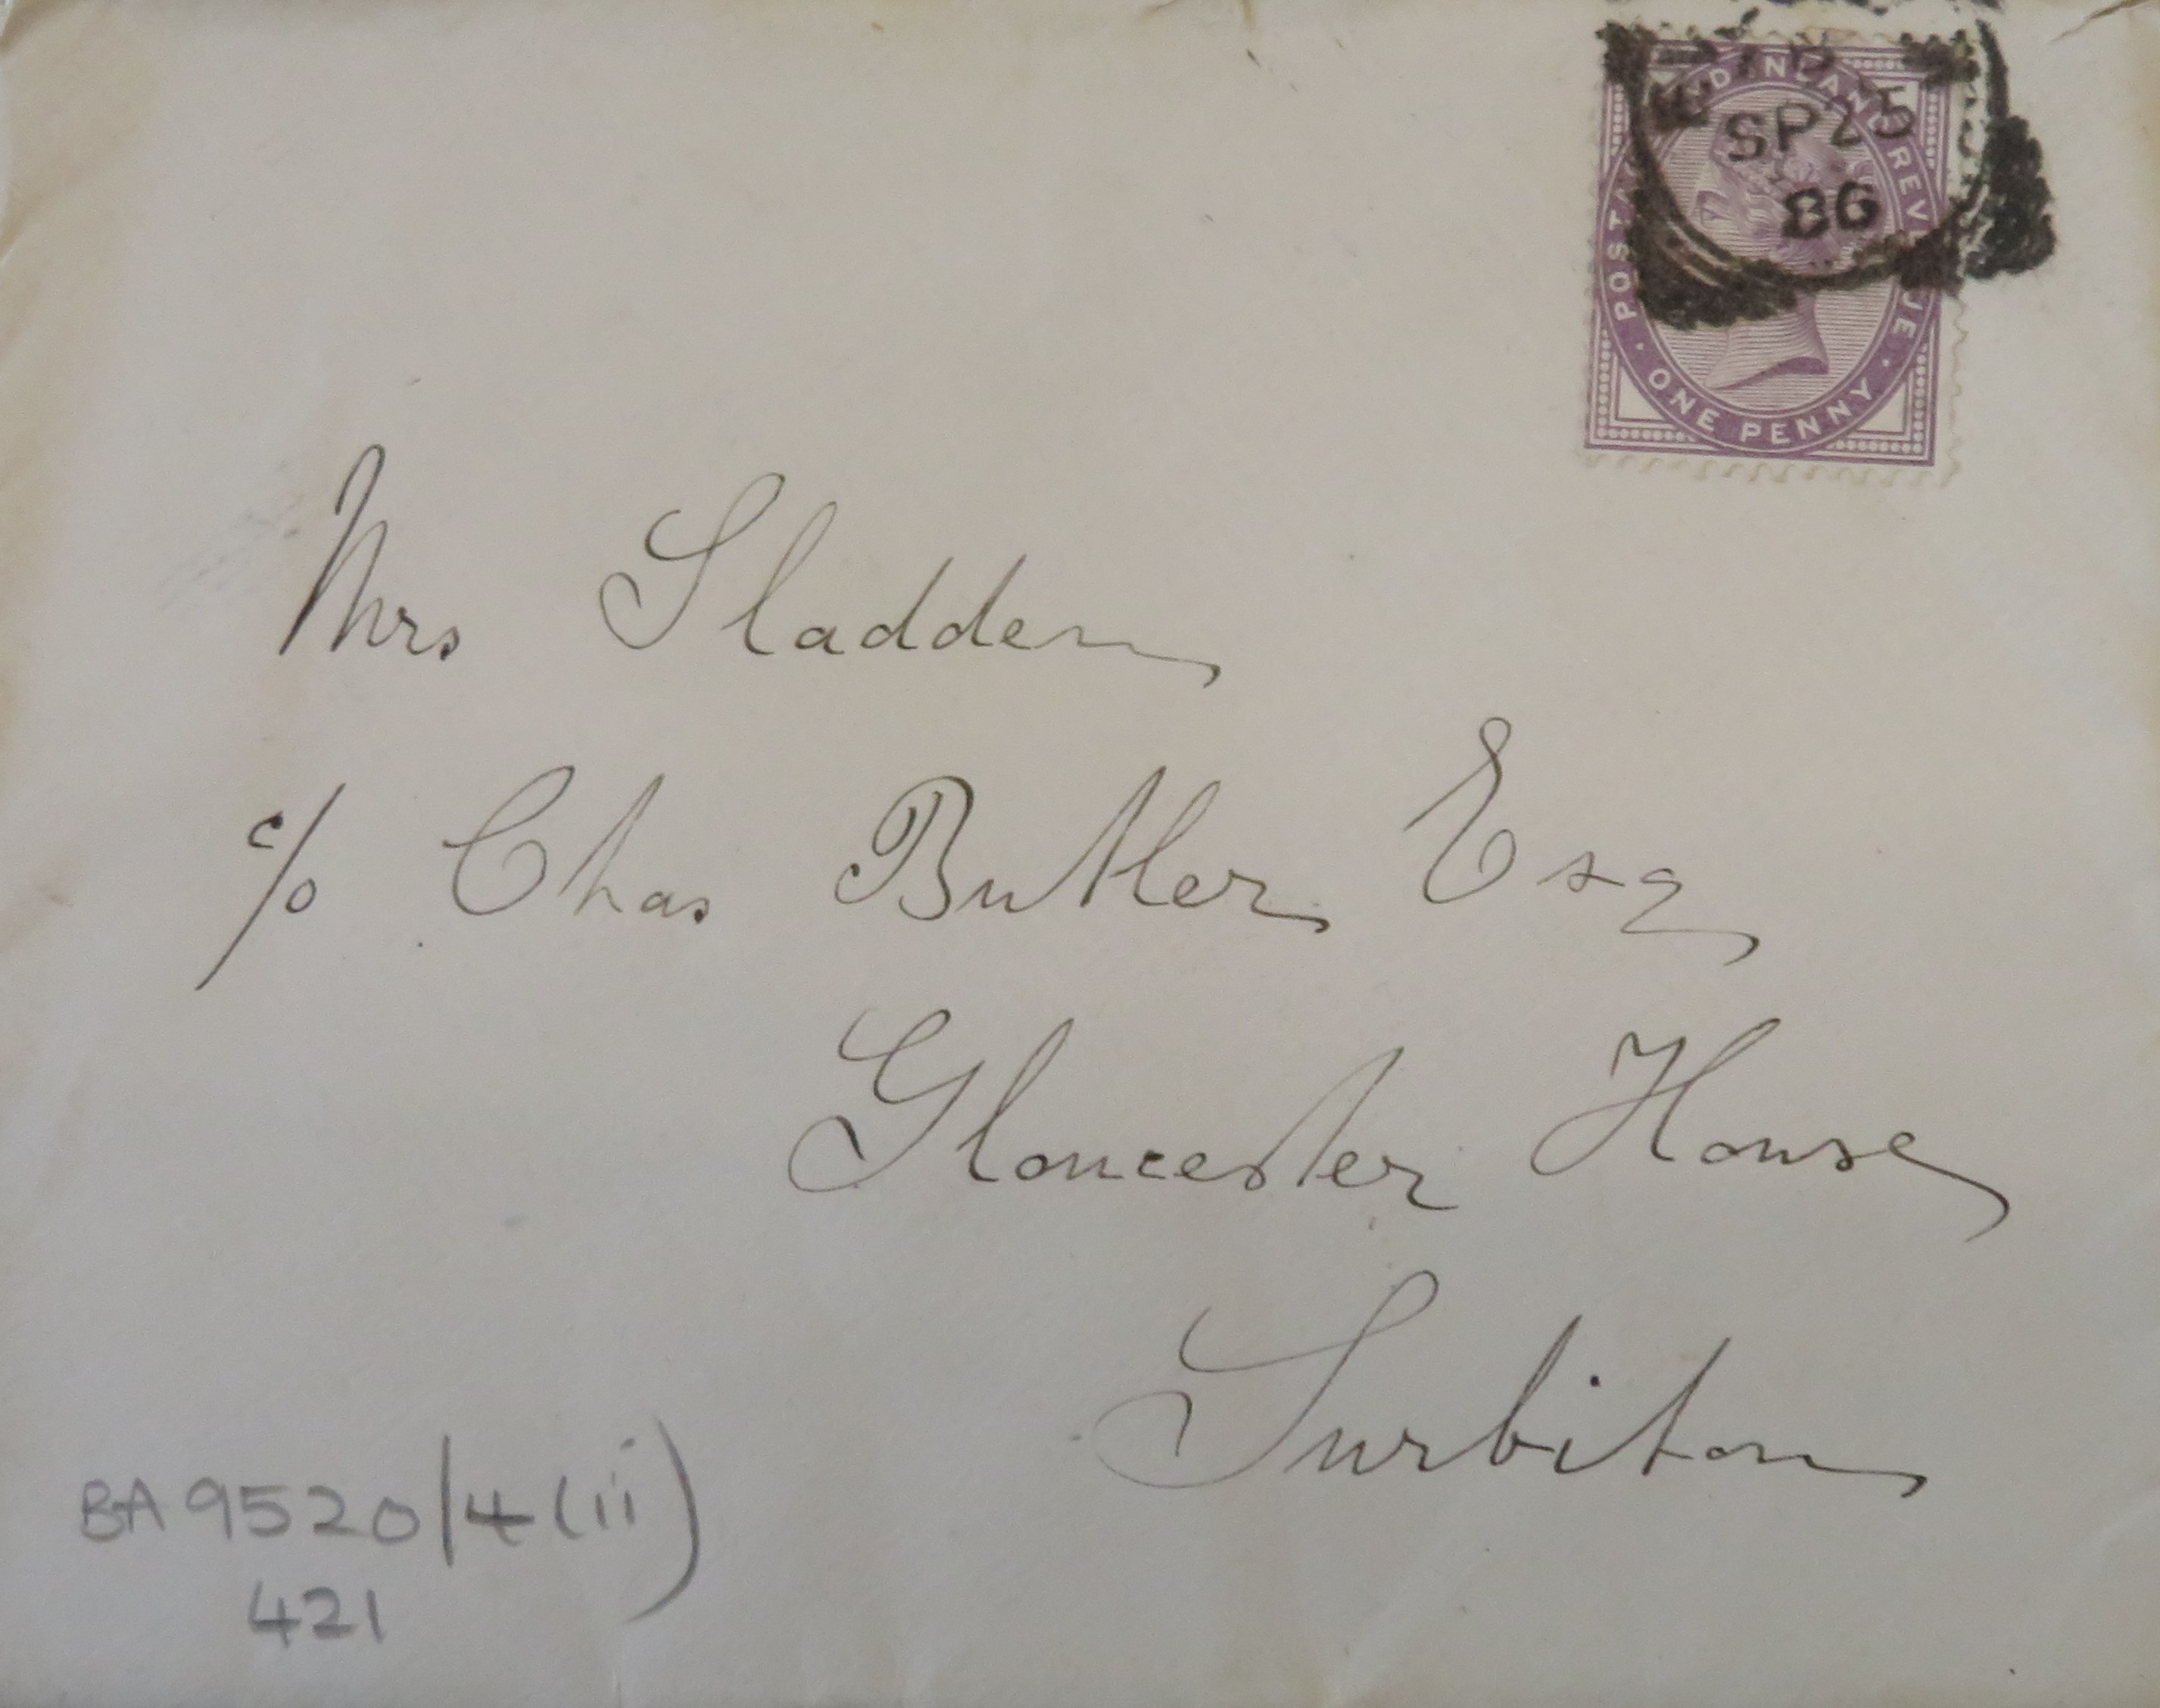 SP 25
86
POSTAGE AND INLAND REVENUE
ONE PENNY
Mrs Sladden
c/o Chas Butler Esq
Gloucester House
Surbiton
BA 9520/4(ii)
421